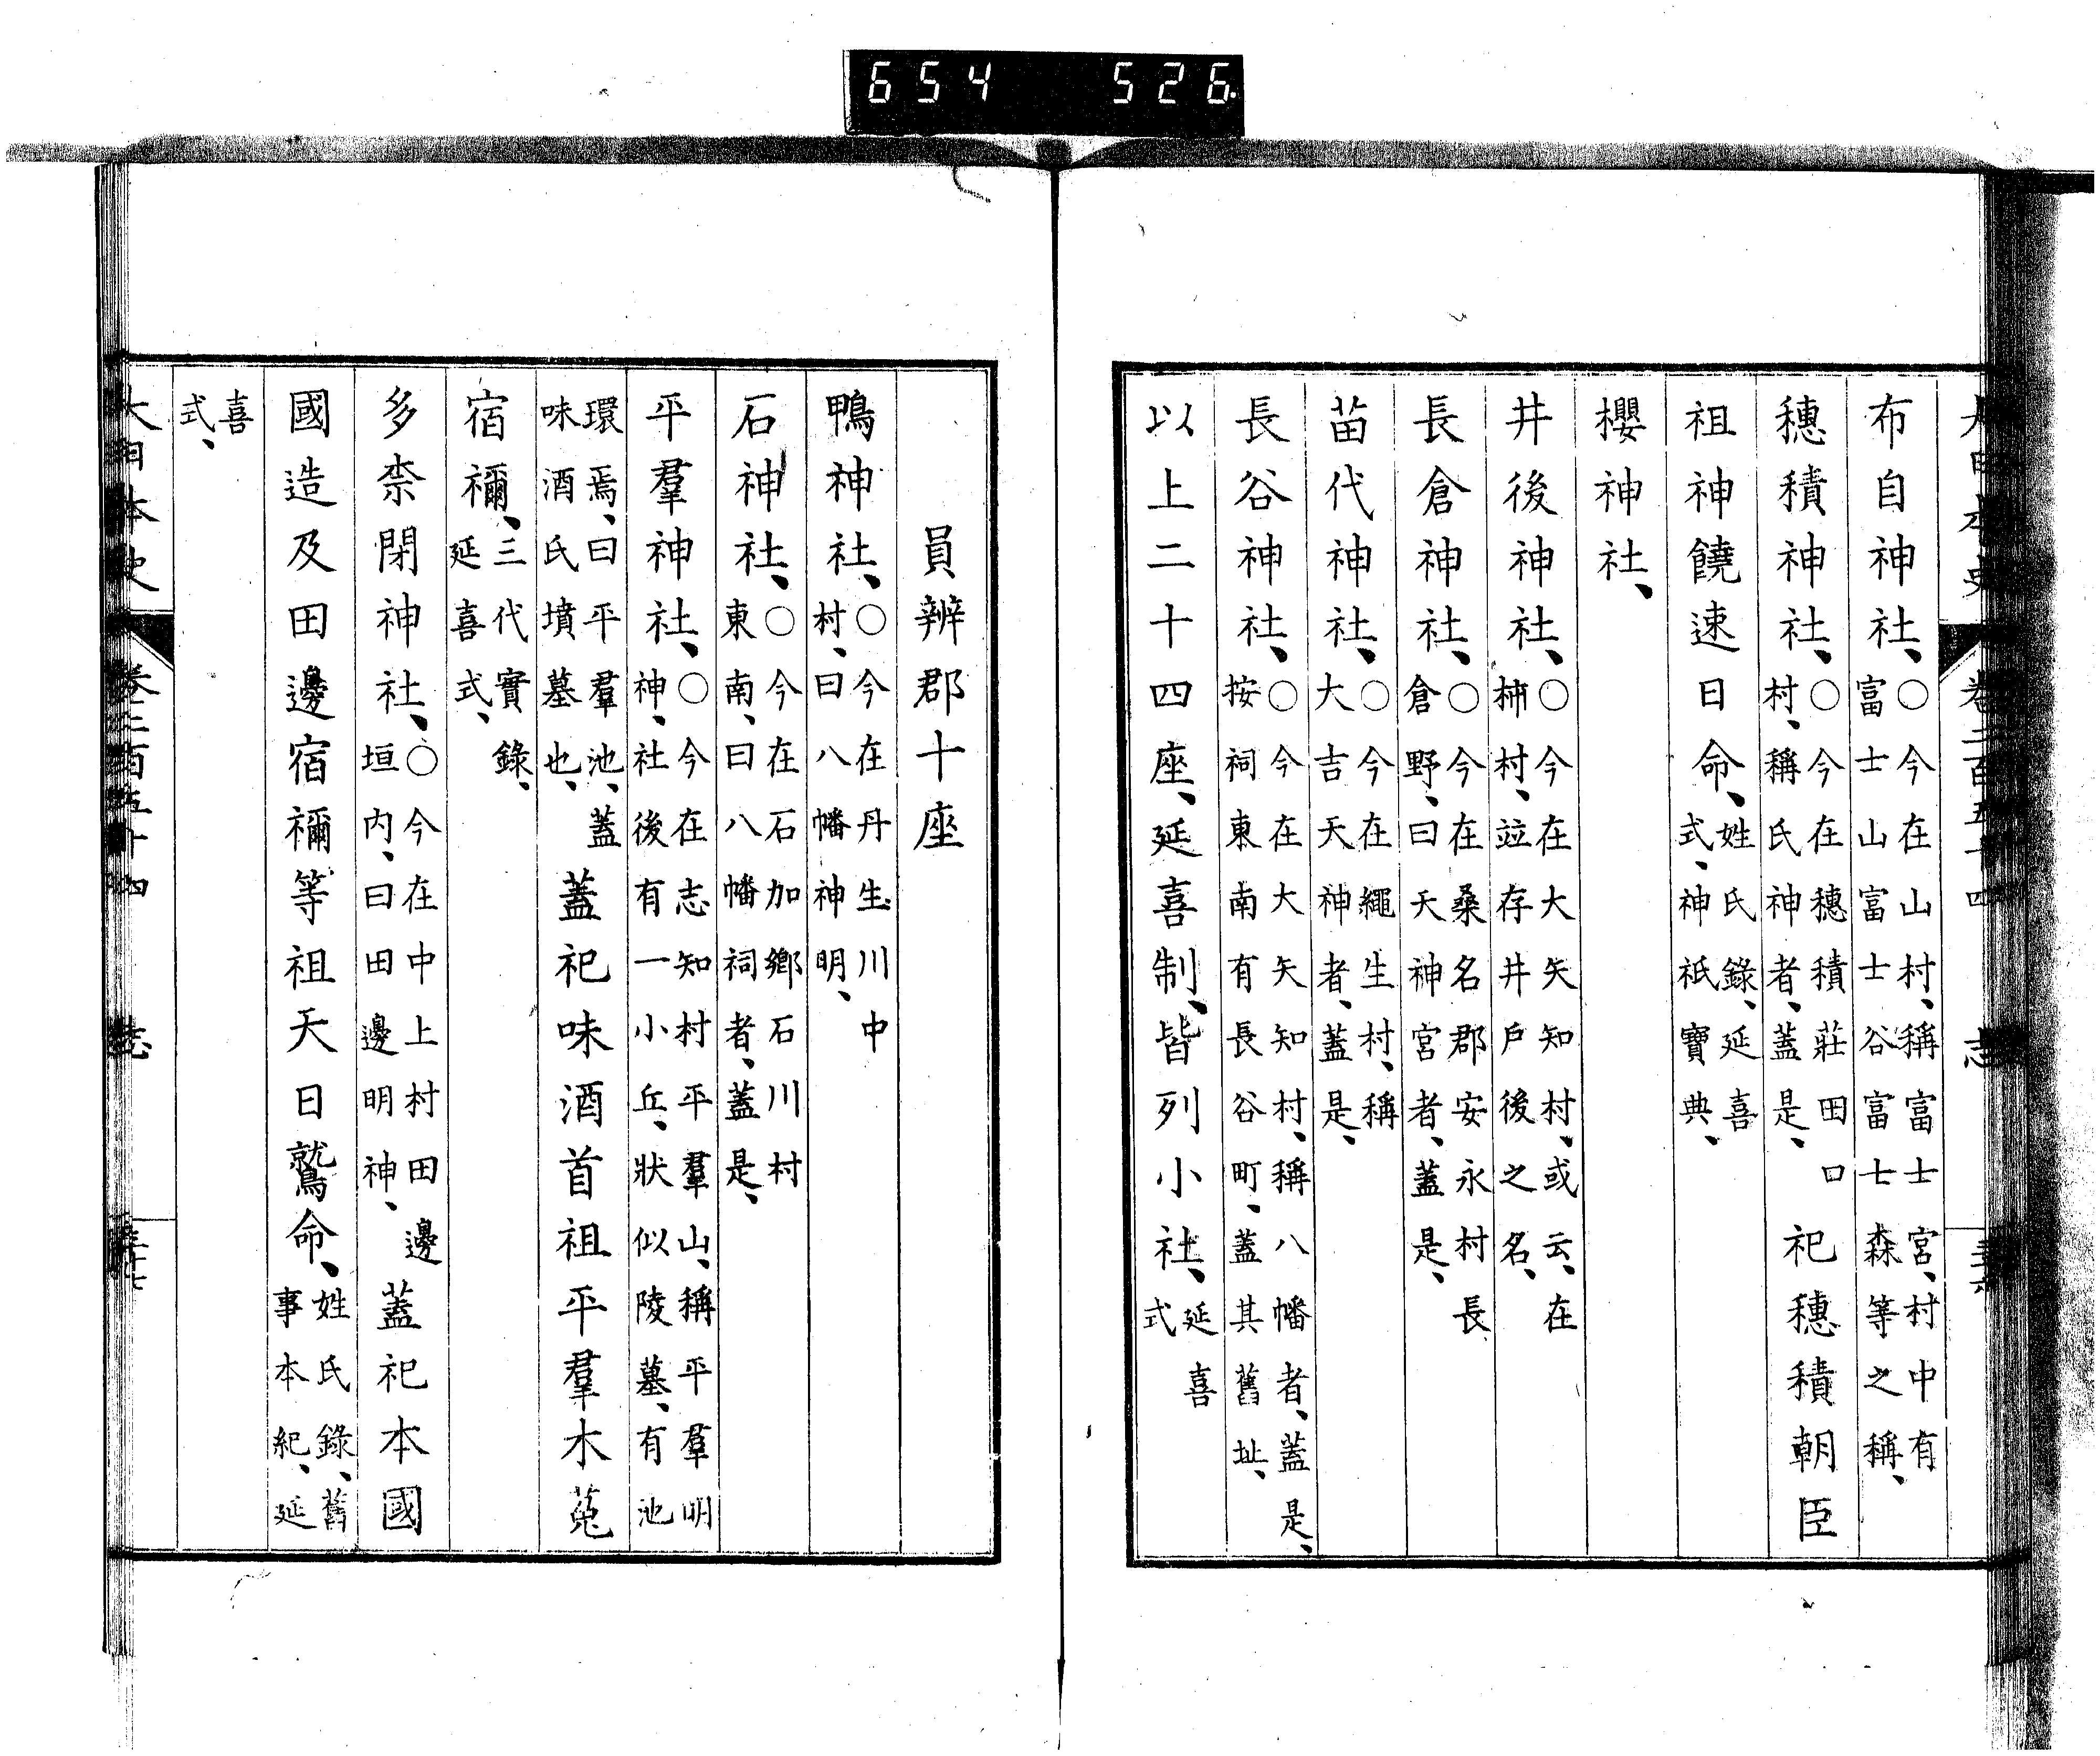 654 526.
大日本史 卷二百五十四 志 三十六
布自神社、○今在山村、稱富士宮、村中有富士山富士谷富士森等之稱、
穗積神社、○今在穗積莊田口村、稱氏神者、蓋是、祀穗積朝臣
祖神饒速日命、姓氏錄、延喜式、神祇寶典、
櫻神社、
井後神社、○今在大矢知村、或云、在柿村、竝存井戶後之名、
長倉神社、○今在桑名郡安永村長倉野、曰天神宮者、蓋是、
苗代神社、○今在繩生村、稱大吉天神者、蓋是、
長谷神社、○今在大矢知村、稱八幡者、蓋是、按祠東南有長谷町、蓋其舊址、
以上二十四座、延喜制、皆列小社、延喜式
員辨郡十座
鴨神社、○今在丹生川中村、曰八幡神明、
石神社、○今在石加鄉石川村東南、曰八幡祠者、蓋是、
平羣神社、○今在志知村平羣山、稱平羣明神、社後有一小丘、狀似陵墓、有池
環焉、曰平羣池、蓋味酒氏墳墓也、蓋祀味酒首祖平羣木菟
宿禰、三代實錄、延喜式、
多柰閉神社、○今在中上村田邊垣內、曰田邊明神、蓋祀本國
國造及田邊宿禰等祖天日鷲命、姓氏錄、舊事本紀、延
喜式、
大日本史 卷二百五十四 志 三十七